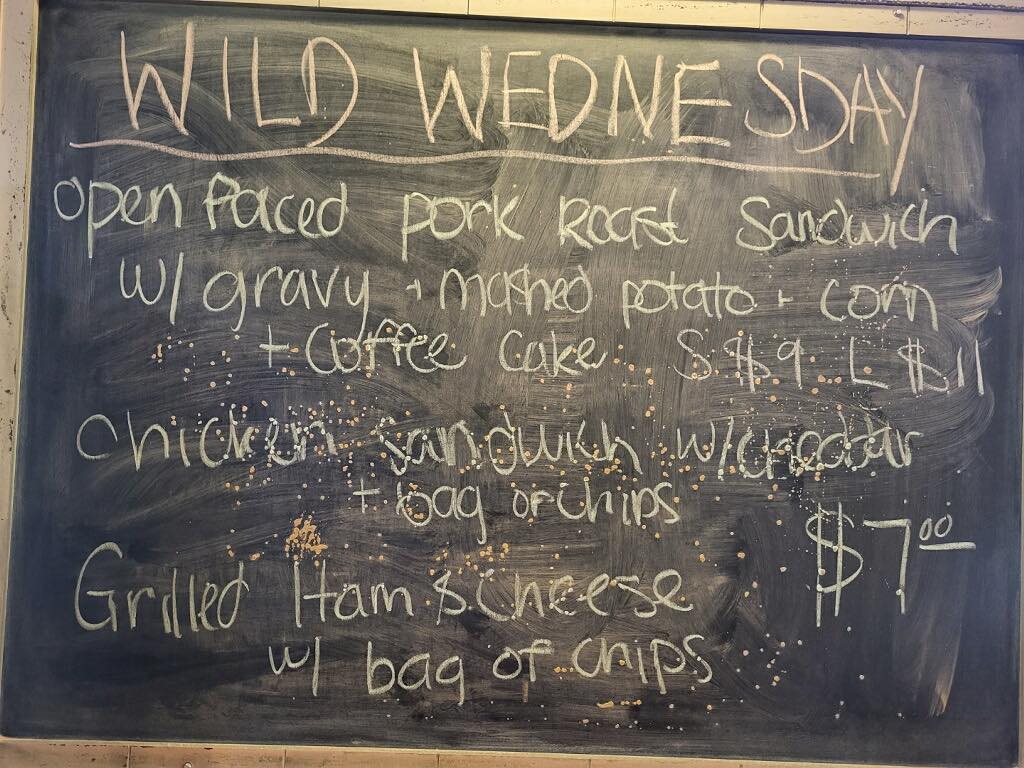 WILD WEDNESDAY
open faced pork Roast Sandwich
w/ gravy + mashed potato + corn
+ Coffee Cake S $9 L $11
Chicken Sandwich w/cheddar
+ bag of chips
$7.00
Grilled Ham & Cheese
w/ bag of chips